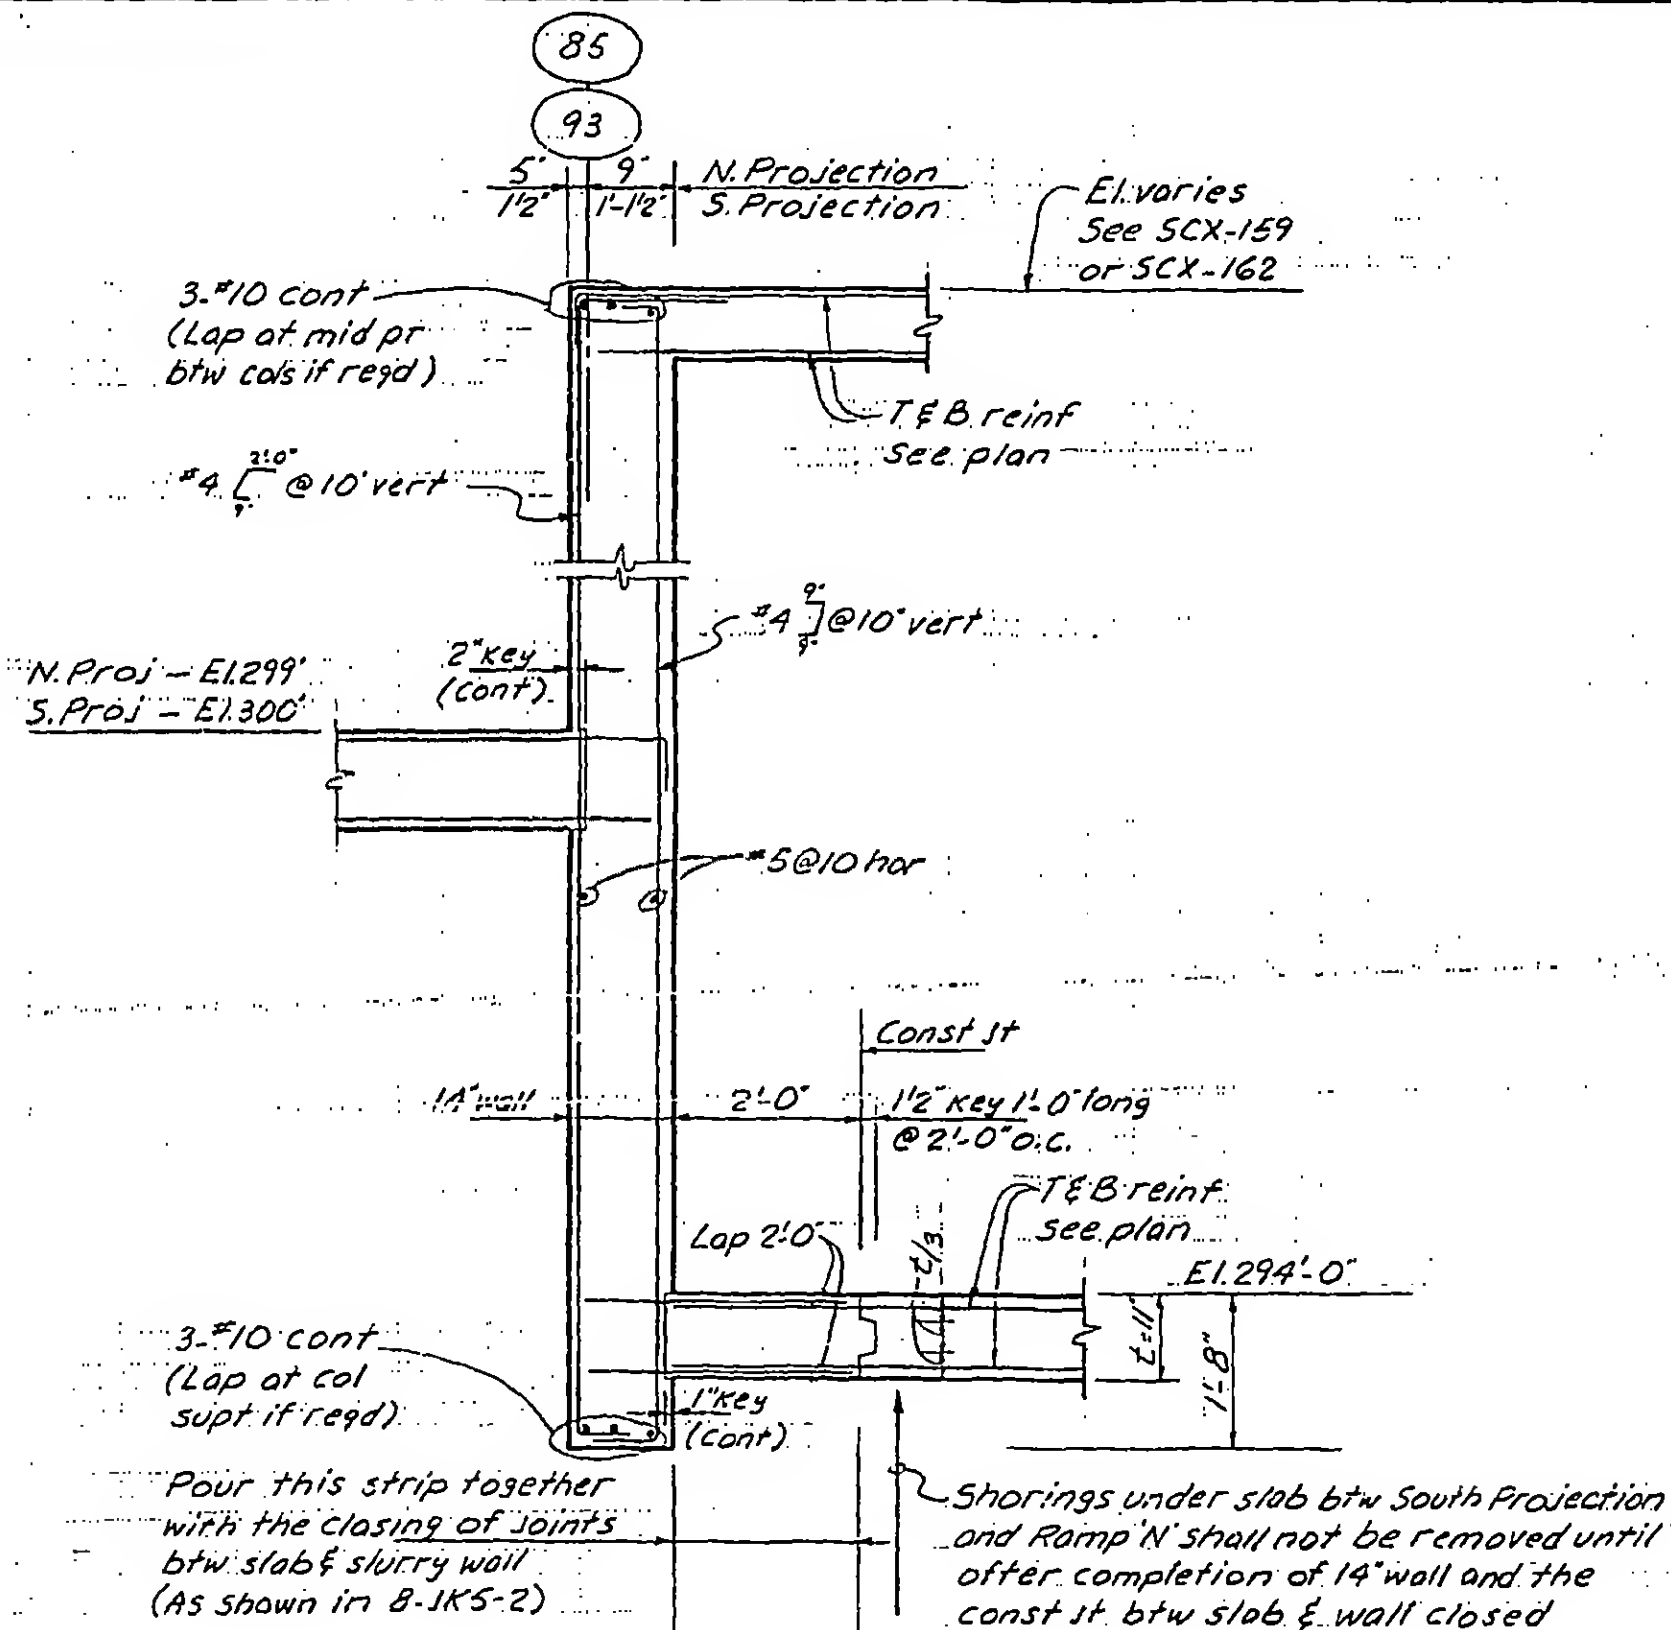 85
93
5" 9" N. Projection
1½" 1'-1½" S. Projection
El. varies
See SCX-159
or SCX-162
3-#10 cont
(Lap at mid pt
btw cols if reqd)
T & B reinf
See plan
2'-0"
#4 @ 10" vert
9"
9"
#4 @ 10" vert
9"
2" key
(cont)
N. Proj - El. 299'
S. Proj - El. 300'
#5 @ 10 hor
Const Jt
14" wall
2'-0"
1½" key 1'-0" long
@ 2'-0" o.c.
T & B reinf
see plan
Lap 2'-0"
t/3
El. 294'-0"
t=11"
1'-8"
3-#10 cont
(Lap at col
supt if reqd)
1" key
(cont)
Pour this strip together
with the closing of joints
btw slab & slurry wall
(As shown in B-JKS-2)
Shorings under slab btw South Projection
and Ramp 'N' shall not be removed until
after completion of 14" wall and the
const jt. btw slab & wall closed